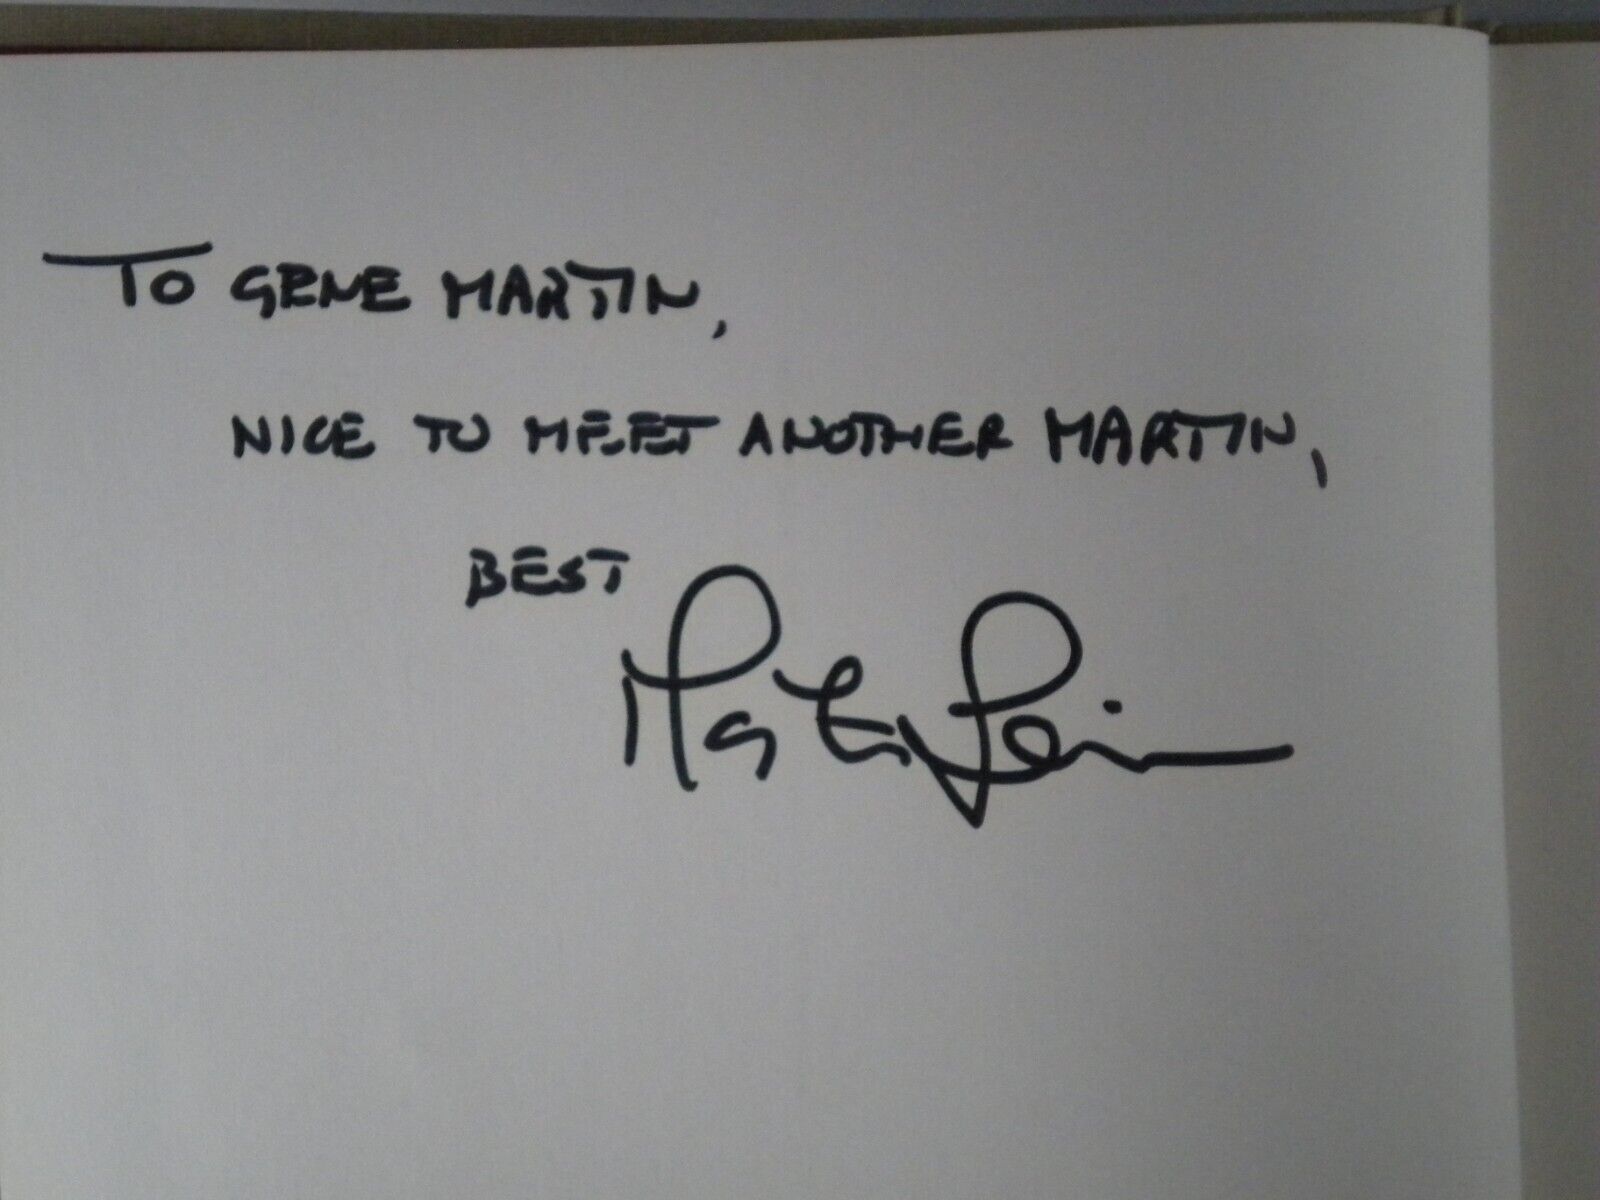 TO GENE MARTIN,
NICE TO MEET ANOTHER MARTIN,
BEST
Martin